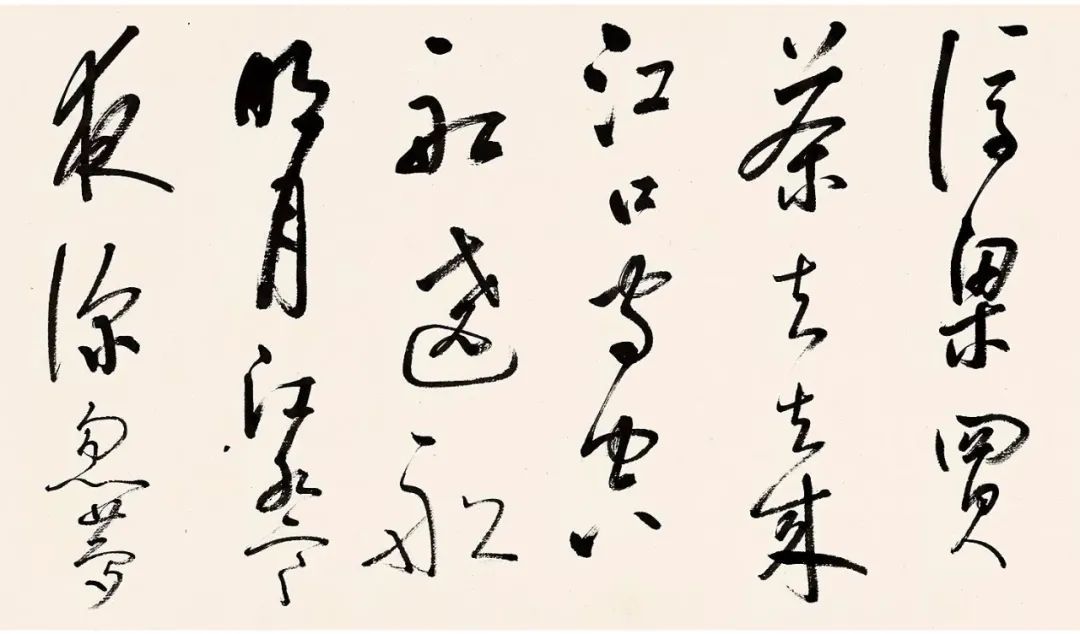 浮梁買
茶去去来
江口守空
船遶船
明月江水寒
夜深忽夢